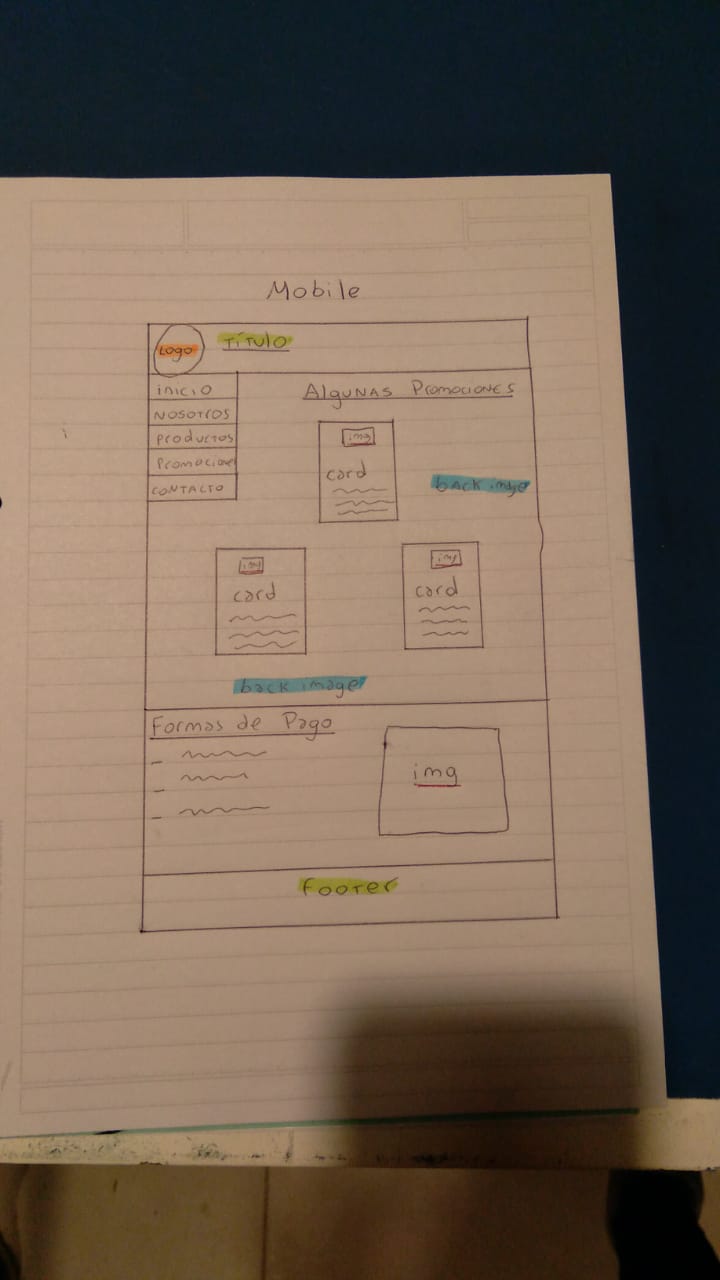 Mobile
Logo
TÍTULO
inicio
NOSOTROS
Productos
Promociones
CONTACTO
ALGUNAS PROMOCIONES
img
card
back image
img
card
img
card
back image
Formas de Pago
img
Footer